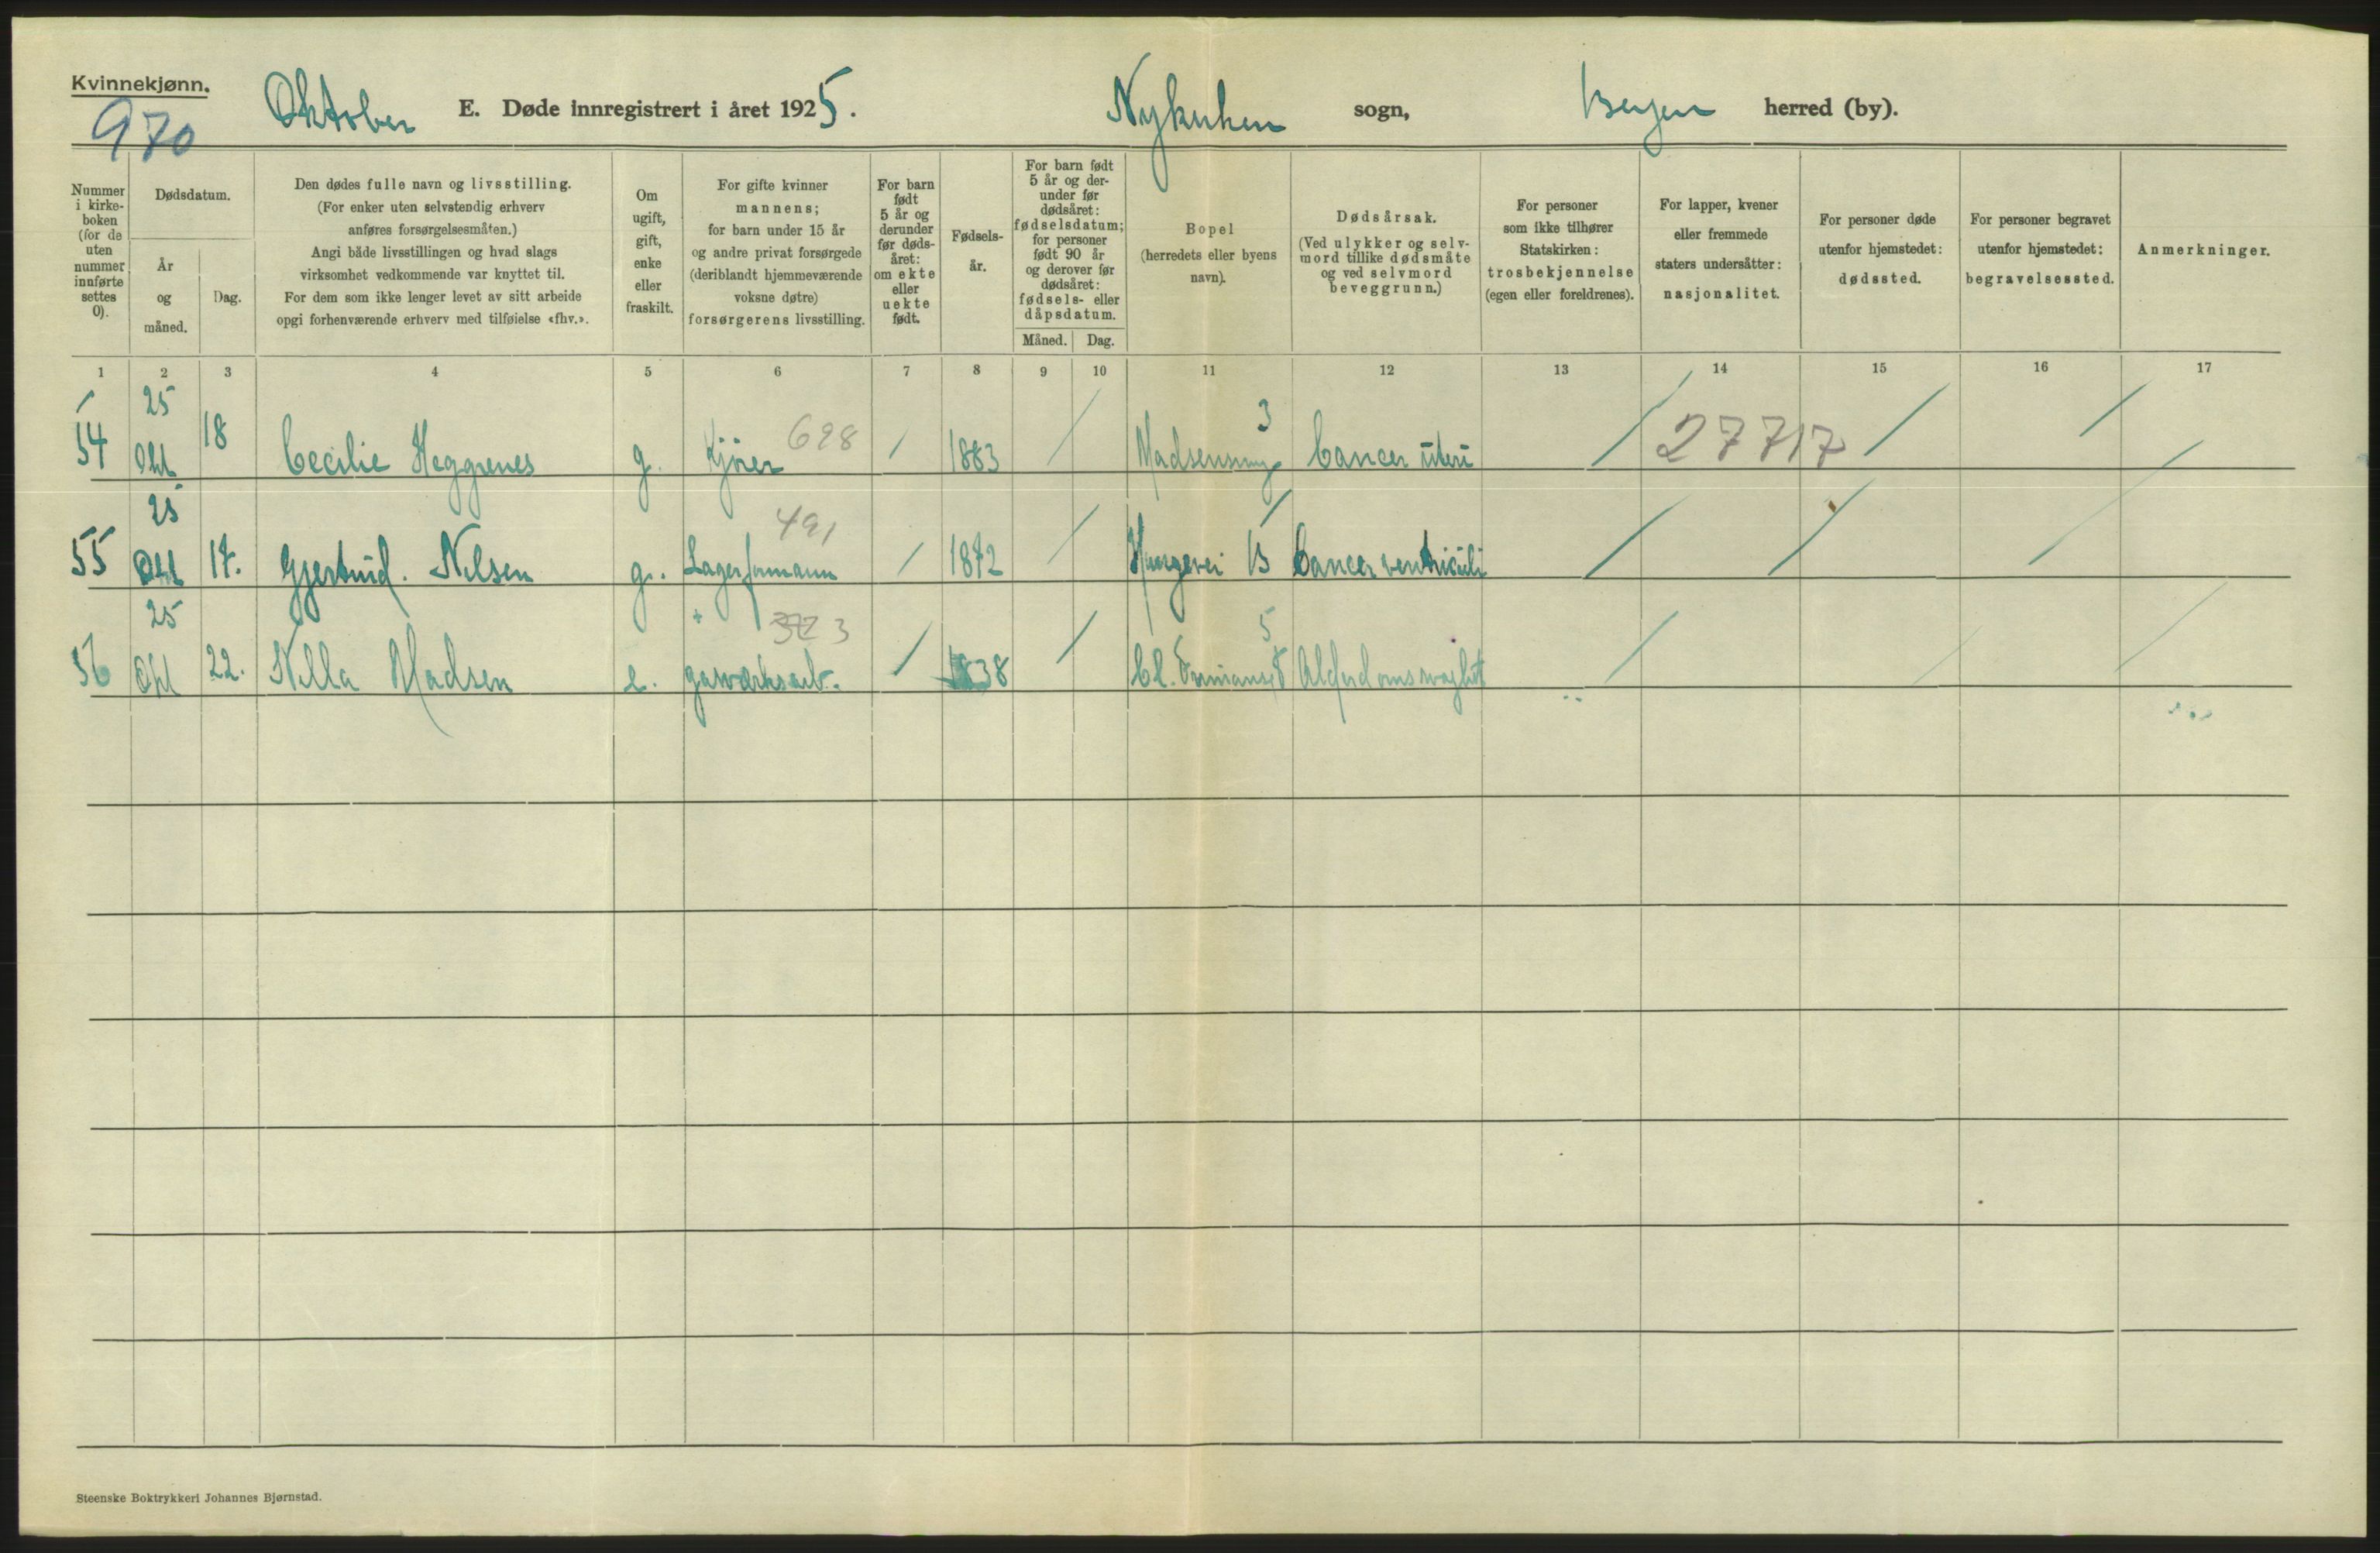 Kvinnekjønn.
970
Oktober E. Døde innregistrert i året 1925. Nykirken sogn, Bergen herred (by).
Nummer i kirke- boken (for de uten nummer innførte settes 0).
Dødsdatum.
År og måned.
Dag.
Den dødes fulle navn og livsstilling.
(For enker uten selvstendig erhverv
anføres forsørgelsesmåten.)
Angi både livsstillingen og hvad slags
virksomhet vedkommende var knyttet til.
For dem som ikke lenger levet av sitt arbeide
opgi forhenværende erhverv med tilføielse «fhv.».
Om ugift, gift, enke eller fraskilt.
For gifte kvinner
mannens;
for barn under 15 år
og andre privat forsørgede
(deriblandt hjemmeværende
voksne døtre)
forsørgerens livsstilling.
For barn født 5 år og derunder før døds- året: om ekte eller uekte født.
Fødsels- år.
For barn født 5 år og der- under før dødsåret: fødselsdatum; for personer født 90 år og derover før dødsåret: fødsels- eller dåpsdatum.
Måned. Dag.
Bopel
(herredets eller byens
navn).
Dødsårsak.
(Ved ulykker og selv-
mord tillike dødsmåte
og ved selvmord
beveggrunn.)
For personer
som ikke tilhører
Statskirken:
trosbekjennelse
(egen eller foreldrenes).
For lapper, kvener
eller fremmede
staters undersåtter:
nasjonalitet.
For personer døde
utenfor hjemstedet:
dødssted.
For personer begravet
utenfor hjemstedet:
begravelsessted.
Anmerkninger.
1 2 3 4 5 6 7 8 9 10 11 12 13 14 15 16 17
54 25 Okt 18 Cecilie Heggrenes g. Kjører 628 / 1883 / 3 Cancer uteri / 27717 / / /
55 25 Okt 17. Gjertrud. Nilsen g. Lagerformann 491 / 1872 / / Cancer ventriculi / / / /
56 25 Okt 22. Nilla Madsen e. gasverksarb. 3 / 1838 / 5 Alderdomssvaghet / / /
Steenske Boktrykkeri Johannes Bjørnstad.